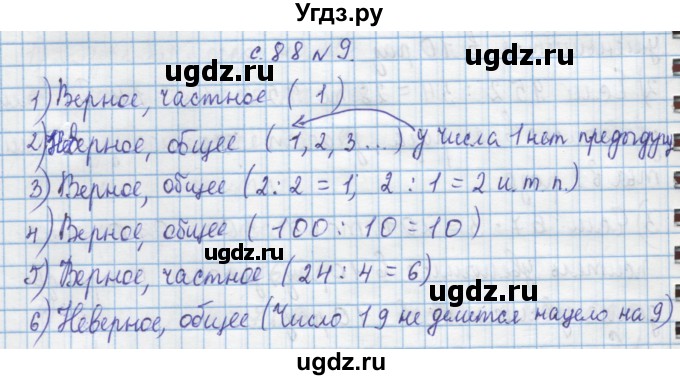 Угдз.ру
с. 88 № 9.
угдз.ru
1) Верное, частное ( 1 )
2) Неверное, общее ( 1, 2, 3 ... ) у числа 1 нет предыдущ
угдз.ru угдз.ru
3) Верное, общее (2 : 2 = 1; 2 : 1 = 2 и. т. п.)
4) Верное, общее ( 100 : 10 = 10 )
угдз.ru угдз.ru
5) Верное, частное ( 24 : 4 = 6)
угдз.ru
6) Неверное, общее (Число 19 не делится нацело на 9)
угдз.ru